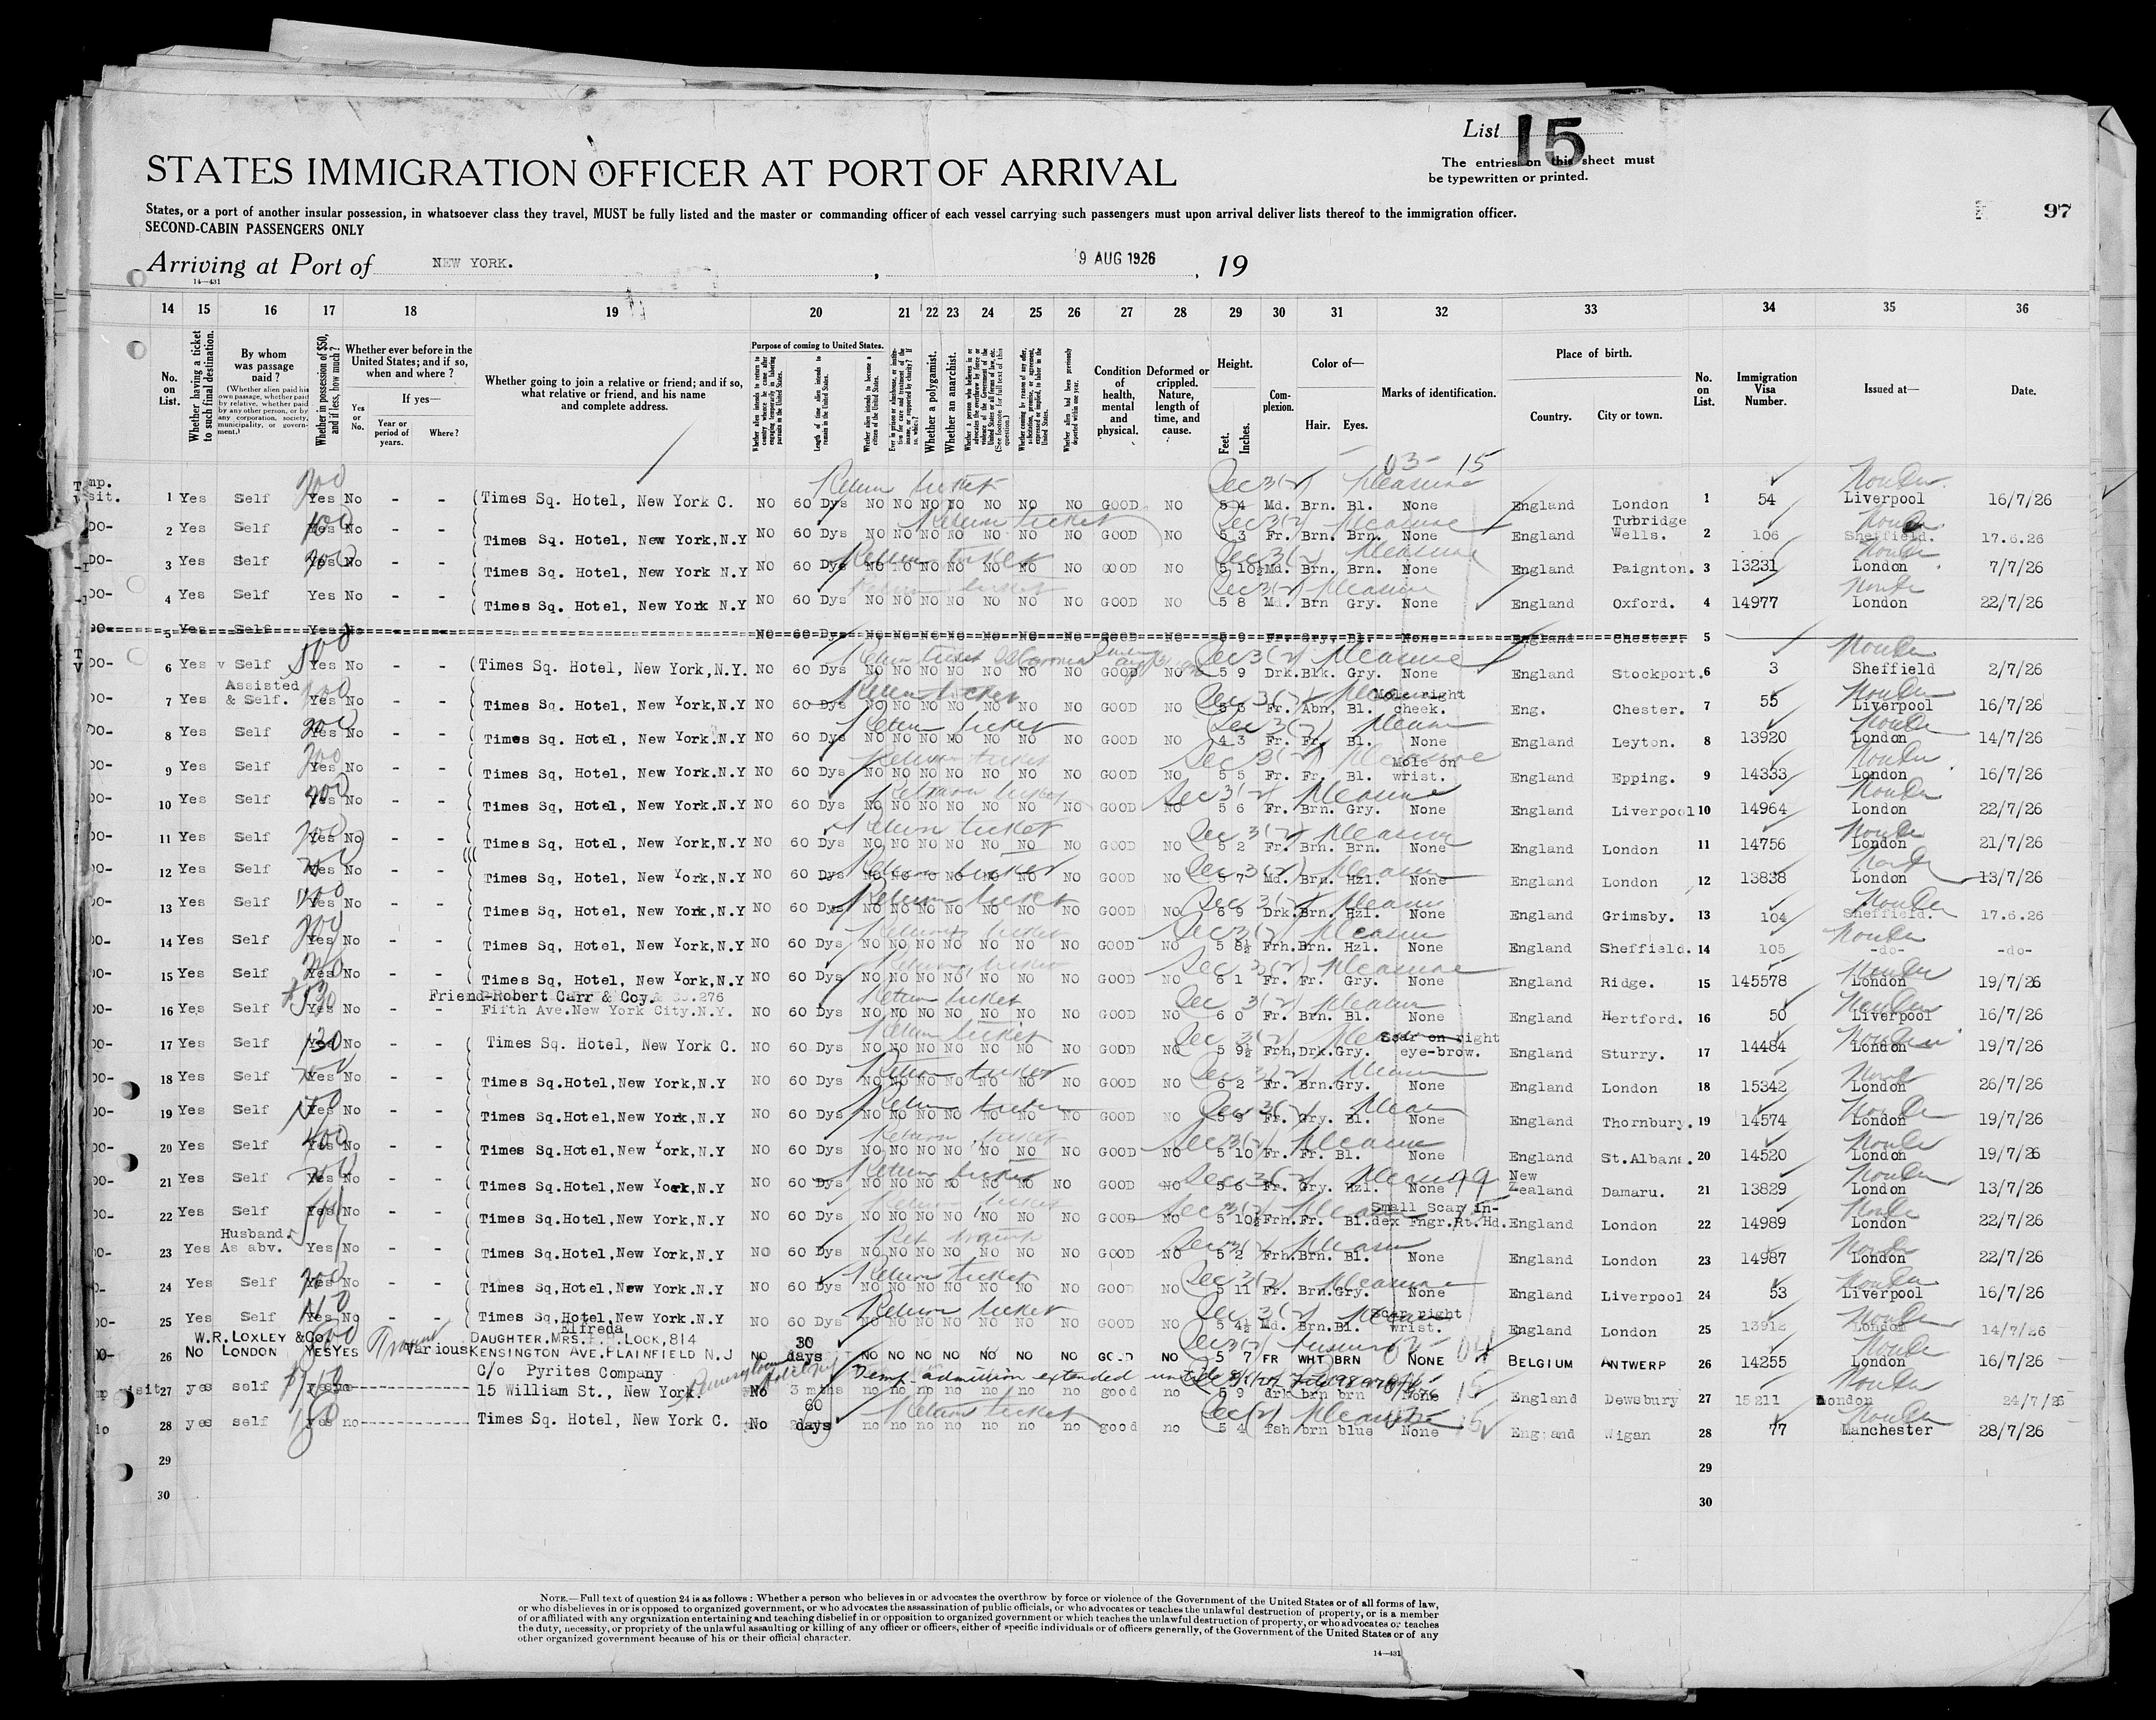 List 15
The entries on this sheet must
be typewritten or printed.
STATES IMMIGRATION OFFICER AT PORT OF ARRIVAL
States, or a port of another insular possession, in whatsoever class they travel, MUST be fully listed and the master or commanding officer of each vessel carrying such passengers must upon arrival deliver lists thereof to the immigration officer.
97
SECOND-CABIN PASSENGERS ONLY
Arriving at Port of NEW YORK. , 9 AUG 1926 , 19
14—431
14 15 16 17 18 19 20 21 22 23 24 25 26 27 28 29 30 31 32 33 34 35 36
No. on List.
Whether having a ticket to such final destination.
By whom was passage paid?
(Whether alien paid his own passage, whether paid by relative, whether paid by any other person, or by any corporation, society, municipality, or government.)
Whether in possession of $50, and if less, how much?
Whether ever before in the United States; and if so, when and where?
Yes or No.
If yes—
Year or period of years.
Where?
Whether going to join a relative or friend; and if so, what relative or friend, and his name and complete address.
Purpose of coming to United States.
Length of time alien intends to remain in the United States.
Whether alien intends to become a citizen of the United States.
Whether a polygamist.
Whether an anarchist.
Condition of health, mental and physical.
Deformed or crippled. Nature, length of time, and cause.
Height.
Feet. Inches.
Complexion.
Color of—
Hair. Eyes.
Marks of identification.
Place of birth.
Country. City or town.
No. on List.
Immigration Visa Number.
Issued at—
Date.
03- 15
1 Yes Self 200 Yes No - - Times Sq. Hotel, New York C. NO 60 Dys Return ticket NO NO NO NO NO NO NO GOOD NO Sec 3(2) Pleasure 5 4 Md. Brn. Bl. None England London 1 54 Liverpool 16/7/26
2 Yes Self Yes No - - Times Sq. Hotel, New York,N.Y NO 60 Dys Return ticket NO NO NO NO NO NO NO GOOD NO Sec 3(2) Pleasure 5 3 Fr. Brn. Brn. None England Tunbridge Wells. 2 106 Sheffield. 17.6.26
3 Yes Self 200 Yes No - - Times Sq. Hotel, New York N.Y NO 60 Dys Return ticket NO NO NO NO NO NO NO GOOD NO Sec 3(2) Pleasure 5 10½ Md. Brn. Brn. None England Paignton. 3 13231 London 7/7/26
4 Yes Self Yes No - - Times Sq. Hotel, New York N.Y NO 60 Dys Return ticket NO NO NO NO NO NO NO GOOD NO Sec 3(2) Pleasure 5 8 Md. Brn Gry. None England Oxford. 4 14977 London 22/7/26
5 Yes Self Yes No NO 60 Dys NO NO NO NO NO NO NO GOOD NO 5 9 Fr. Gry. Bl. None England Chester. 5
6 Yes v Self Yes No - - Times Sq. Hotel, New York,N.Y. NO 60 Dys Return ticket NO NO NO NO NO NO NO GOOD NO Sec 3(2) Pleasure 5 9 Drk. Blk. Gry. None England Stockport. 6 3 Sheffield 2/7/26
7 Yes Assisted & Self. Yes No - - Times Sq. Hotel, New York,N.Y NO 60 Dys Return ticket NO NO NO NO NO NO NO GOOD NO Sec 3(2) Fr. Abn, Bl. Mole right cheek. Eng. Chester. 7 55 Liverpool 16/7/26
8 Yes Self 200 Yes No - - Times Sq. Hotel, New York.N.Y NO 60 Dys Return ticket NO NO NO NO NO NO NO GOOD NO Sec 3(2) Pleasure 4 3 Fr. Fr. Bl. None England Leyton. 8 13920 London 14/7/26
9 Yes Self 200 Yes No - - Times Sq, Hotel, New York.N.Y NO 60 Dys Return ticket NO NO NO NO NO NO NO GOOD NO Sec 3(2) Pleasure 5 5 Fr. Fr. Bl. Mole on wrist. England Epping. 9 14333 London 16/7/26
10 Yes Self 200 Yes No - - Times Sq, Hotel, New York.N.Y NO 60 Dys Return ticket NO NO NO NO NO NO NO GOOD NO Sec 3(2) Pleasure 5 6 Fr. Brn. Gry. None England Liverpool 10 14964 London 22/7/26
11 Yes Self 200 Yes No - - Times Sq, Hotel, New York,N.Y NO 60 Dys Return ticket NO NO NO NO NO NO NO GOOD NO Sec 3(2) Pleasure 5 2 Fr. Brn. Brn. None England London 11 14756 London 21/7/26
12 Yes Self Yes No - - Times Sq, Hotel, New York,N.Y NO 60 Dys Return ticket NO NO NO NO NO NO NO GOOD NO Sec 3(2) Pleasure 5 7 Md. Brn. Hzl. None England London 12 13838 London 13/7/26
13 Yes Self Yes No - - Times Sq, Hotel, New York,N.Y NO 60 Dys Return ticket NO NO NO NO NO NO NO GOOD NO Sec 3(2) Pleasure 6 9 Drk. Brn. Hzl. None England Grimsby. 13 104 Sheffield. 17.6.26
14 Yes Self 200 Yes No - - Times Sq, Hotel, New York,N.Y NO 60 Dys Return ticket NO NO NO NO NO NO NO GOOD NO Sec 3(2) Pleasure 5 8½ Frh. Brn. Hzl. None England Sheffield. 14 105 -do- -do-
15 Yes Self Yes No - - Times Sq, Hotel, New York,N.Y NO 60 Dys Return ticket NO NO NO NO NO NO NO GOOD NO Sec 3(2) Pleasure 6 1 Fr. Fr. Gry. None England Ridge. 15 145578 London 19/7/26
16 Yes Self Yes No - - Friend-Robert Carr & Coy. 276 Fifth Ave.New York City.N.Y. NO 60 Dys Return ticket NO NO NO NO NO NO NO GOOD NO Sec 3(2) Pleasure 6 0 Fr. Brn. Bl. None England Hertford. 16 50 Liverpool 16/7/26
17 Yes Self 130 Yes No - - Times Sq. Hotel, New York C. NO 60 Dys Return ticket NO NO NO NO NO NO NO GOOD NO Sec 3(2) 5 9½ Frh, Drk. Gry. Scar on right eye-brow. England Sturry. 17 14484 London 19/7/26
18 Yes Self Yes No - - Times Sq.Hotel,New York,N.Y NO 60 Dys Return ticket NO NO NO NO NO NO NO GOOD NO Sec 3(2) Pleasure 6 2 Fr. Brn. Gry. None England London 18 15342 London 26/7/26
19 Yes Self Yes No - - Times Sq.Hotel,New York,N.Y NO 60 Dys Return ticket NO NO NO NO NO NO NO GOOD NO Sec 3(2) Pleasure 5 9 Fr. Gry. Bl. None England Thornbury. 19 14574 London 19/7/26
20 Yes Self 400 Yes No - - Times Sq.Hotel,New York,N.Y NO 60 Dys Return ticket NO NO NO NO NO NO NO GOOD NO Sec 3(2) Pleasure 5 10 Fr. Fr. Bl. None England St.Albans. 20 14520 London 19/7/26
21 Yes Self Yes No - - Times Sq.Hotel,New York,N.Y NO 60 Dys Return ticket NO NO NO NO NO NO NO GOOD NO Sec 3(2) Pleasure 5 6 Fr. Gry. Hzl. None New Zealand Damaru. 21 13829 London 13/7/26
22 Yes Self Yes No - - Times Sq.Hotel,New York,N.Y NO 60 Dys Return ticket NO NO NO NO NO NO NO GOOD NO Sec 3(2) 5 10½ Frh. Fr. Bl. Small Scar In-dex Fngr.Rt.Hd. England London 22 14989 London 22/7/26
23 Yes Husband As abv. Yes No - - Times Sq.Hotel,New York,N.Y NO 60 Dys NO NO NO NO NO NO NO GOOD NO Sec 3(2) Pleasure 5 2 Frh. Brn. Bl. None England London 23 14987 London 22/7/26
24 Yes Self 200 Yes No - - Times Sq,Hotel,New York.N.Y NO 60 Dys Return ticket NO NO NO NO NO NO NO GOOD NO Sec 3(2) Pleasure 5 11 Fr. Brn. Gry. None England Liverpool 24 53 Liverpool 16/7/26
25 Yes Self Yes No - - Times Sq,Hotel,New York.N.Y NO 60 Dys Return ticket NO NO NO NO NO NO NO GOOD NO Sec 3(2) 5 4½ Md. Brn. Bl. Scar right wrist. England London 25 13912 London 14/7/26
26 NO W.R. LOXLEY & Co. LONDON YES YES Various Elfreda DAUGHTER. MRS. LOCK, 814 KENSINGTON AVE. PLAINFIELD N.J NO 30 days NO NO NO NO NO NO GOOD NO 5 7 FR WHT BRN NONE BELGIUM ANTWERP 26 14255 London 16/7/26
27 yes self yes no C/o Pyrites Company 15 William St., New York. No 3 mths Temp admission extended until no no no no no no no good no 5 9 drk brn brn None England Dewsbury 27 15211 London 24/7/26
28 yes self 150 yes no Times Sq. Hotel, New York C. No 60 days Return ticket no no no no no no no good no Sec 3(2) Pleasure 5 4 fsh brn blue None England Wigan 28 77 Manchester 28/7/26
29 29
30 30
NOTE.—Full text of question 24 is as follows: Whether a person who believes in or advocates the overthrow by force or violence of the Government of the United States or of all forms of law,
or who disbelieves in or is opposed to organized government, or who advocates the assassination of public officials, or who advocates or teaches the unlawful destruction of property, or is a member
of or affiliated with any organization entertaining and teaching disbelief in or opposition to organized government or which teaches the unlawful destruction of property, or who advocates or teaches
the duty, necessity, or propriety of the unlawful assaulting or killing of any officer or officers, either of specific individuals or of officers generally, of the Government of the United States or of any
other organized government because of his or their official character.
14—431